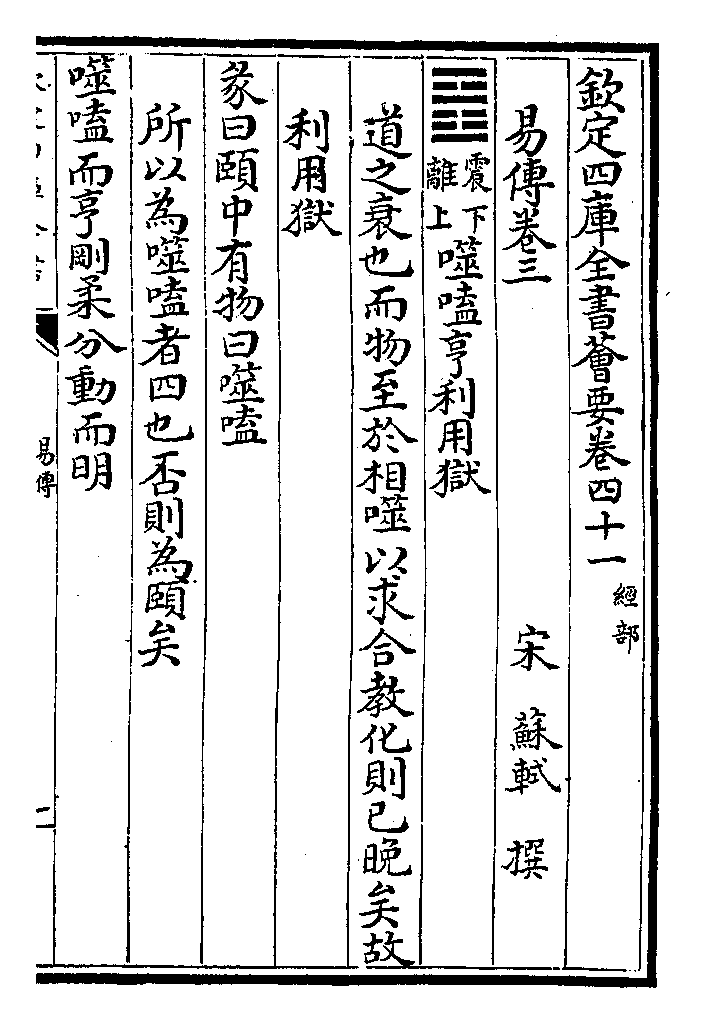 欽定四庫全書薈要卷四十一 經部
易傳卷三 宋 蘇軾 撰
䷔ 震下離上 噬嗑亨利用獄
道之衰也而物至於相噬以求合教化則已晚矣故
利用獄
彖曰頤中有物曰噬嗑
所以為噬嗑者四也否則為頤矣
噬嗑而亨剛柔分動而明
易傳